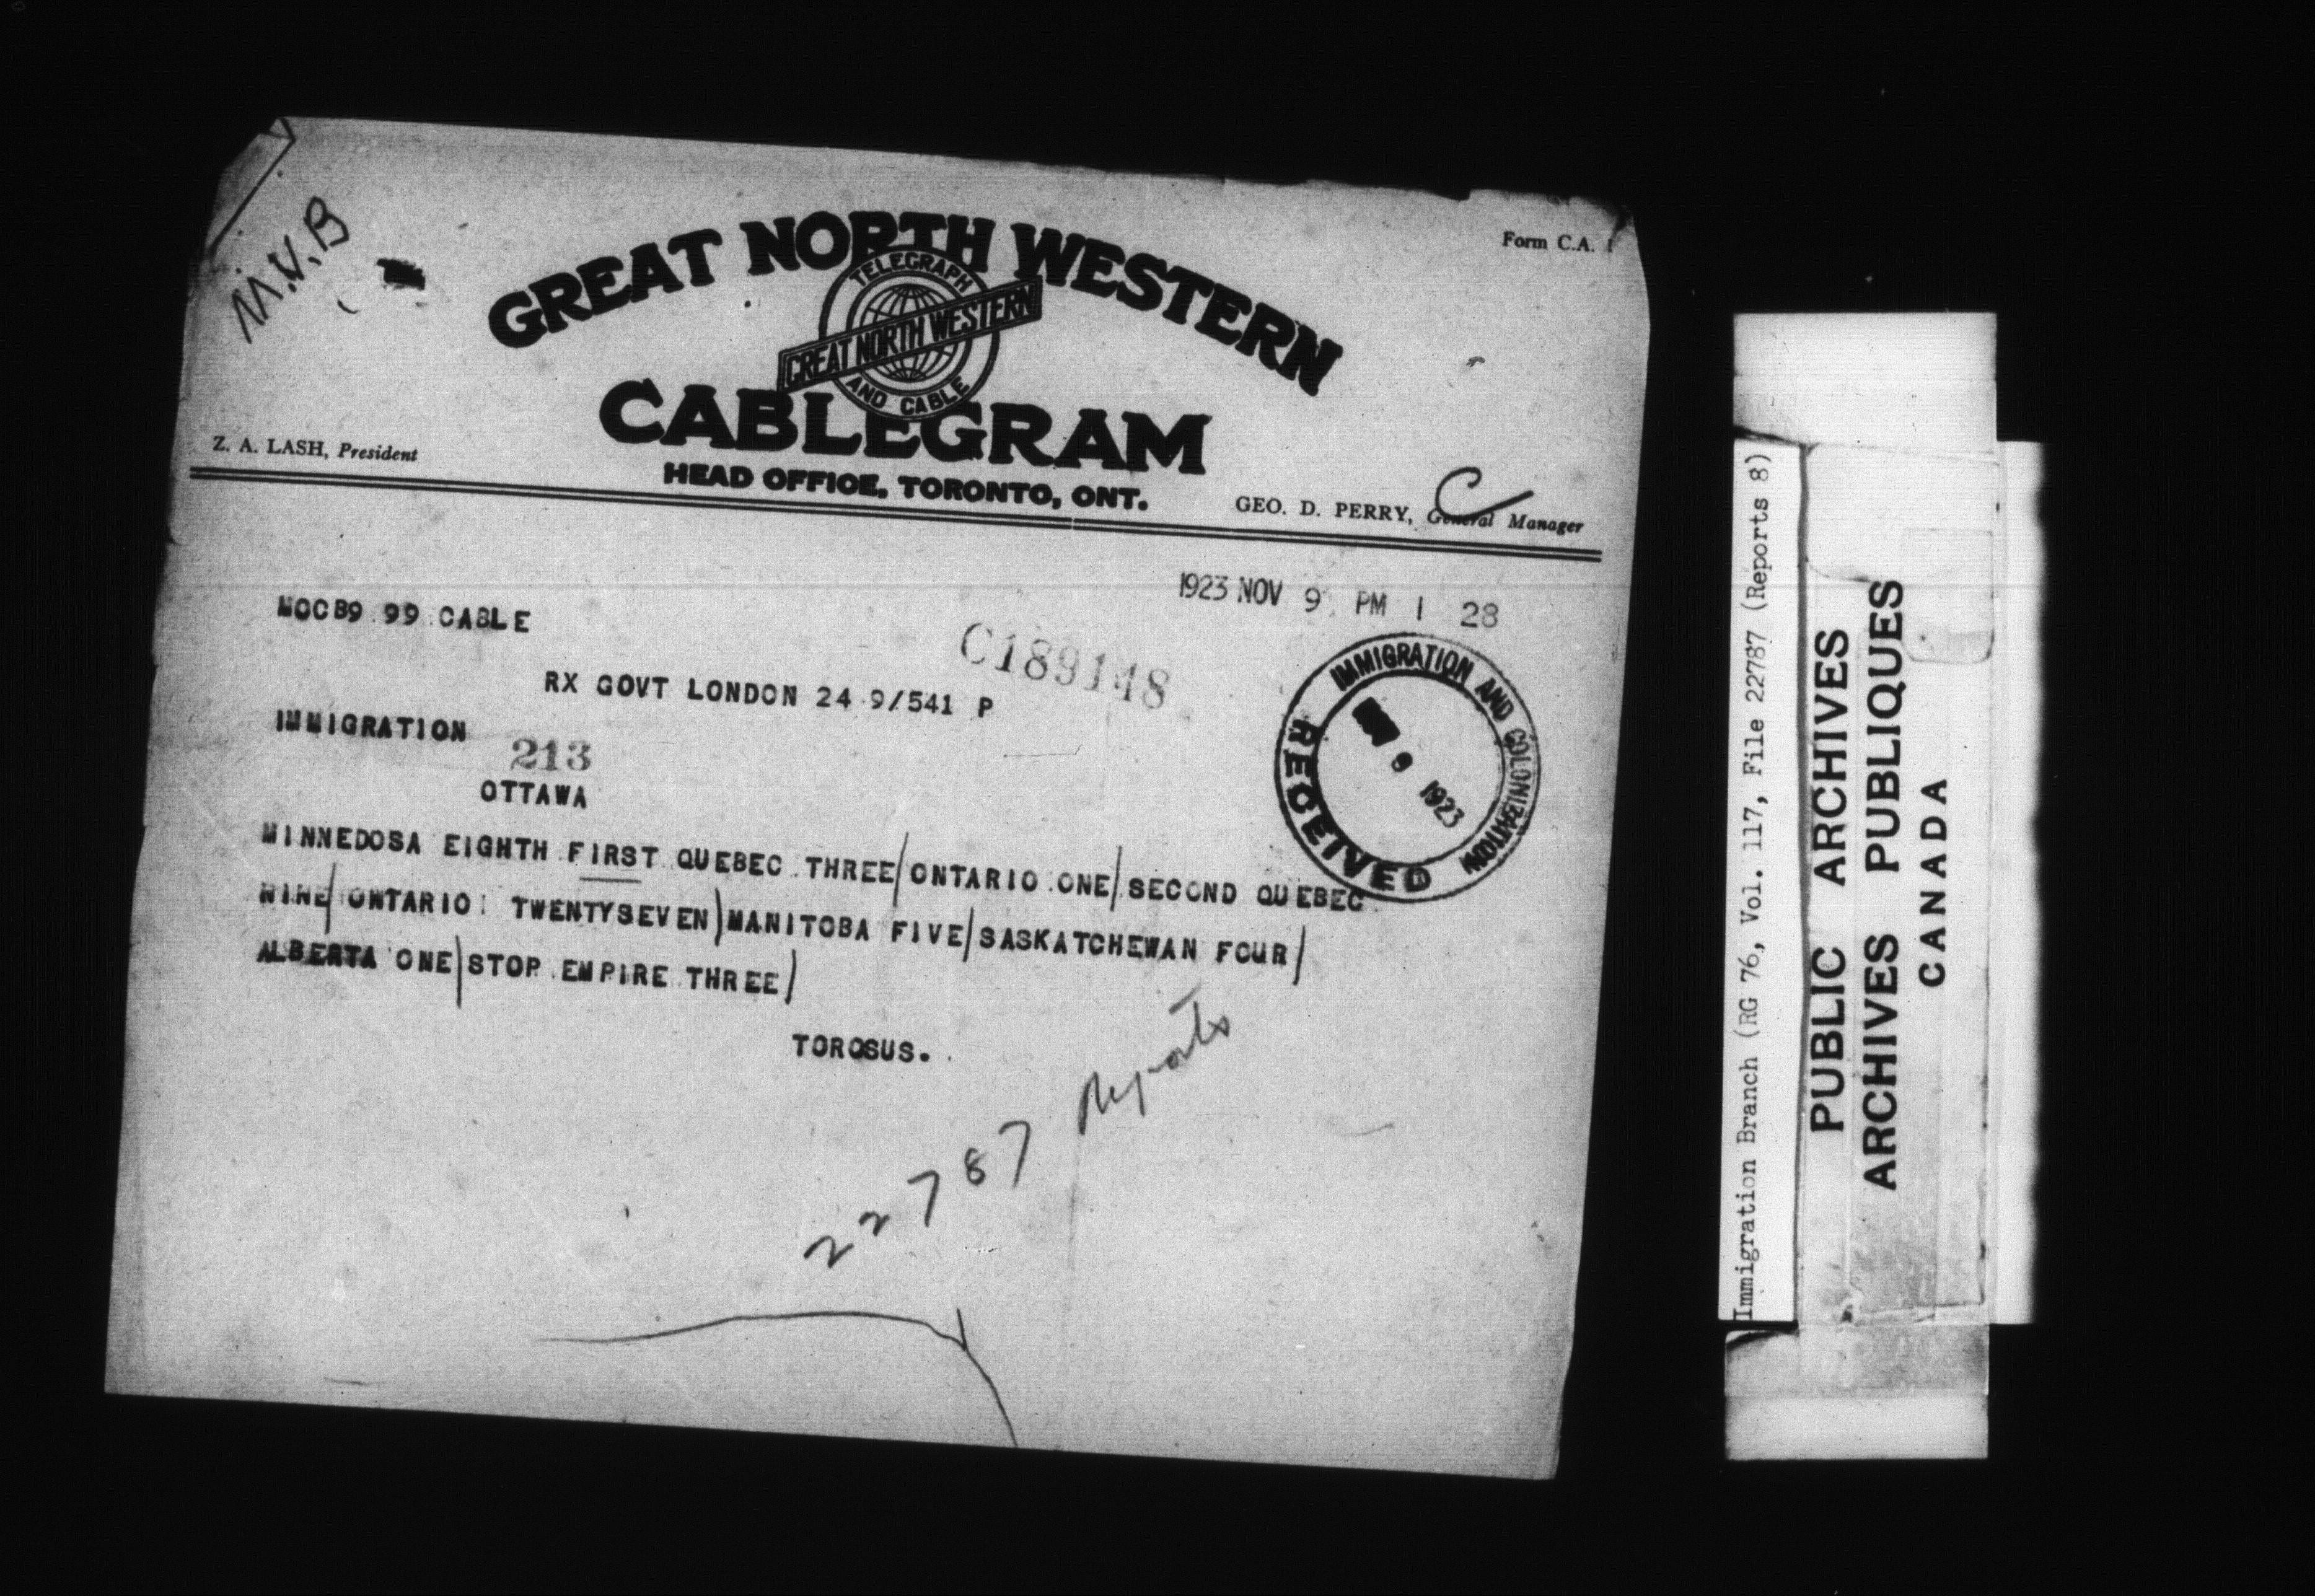 M.V.B
Form C.A. 1
GREAT NORTH WESTERN
TELEGRAPH
GREAT NORTH WESTERN
AND CABLE
CABLEGRAM
HEAD OFFICE, TORONTO, ONT.
Z. A. LASH, President
GEO. D. PERRY, General Manager
C
1923 NOV 9 PM 1 28
MOCB9 99 CABLE
C189148
RX GOVT LONDON 24 9/541 P
IMMIGRATION
213
OTTAWA
IMMIGRATION AND COLONIZATION
9 1923
RECEIVED
MINNEDOSA EIGHTH FIRST QUEBEC THREE/ONTARIO ONE/SECOND QUEBEC
NINE/ONTARIO TWENTYSEVEN)MANITOBA FIVE/SASKATCHEWAN FOUR/
ALBERTA ONE/STOP EMPIRE THREE/
TOROSUS.
22787 Reports
Immigration Branch (RG 76, Vol. 117, File 22787 (Reports 8)
PUBLIC ARCHIVES
ARCHIVES PUBLIQUES
CANADA